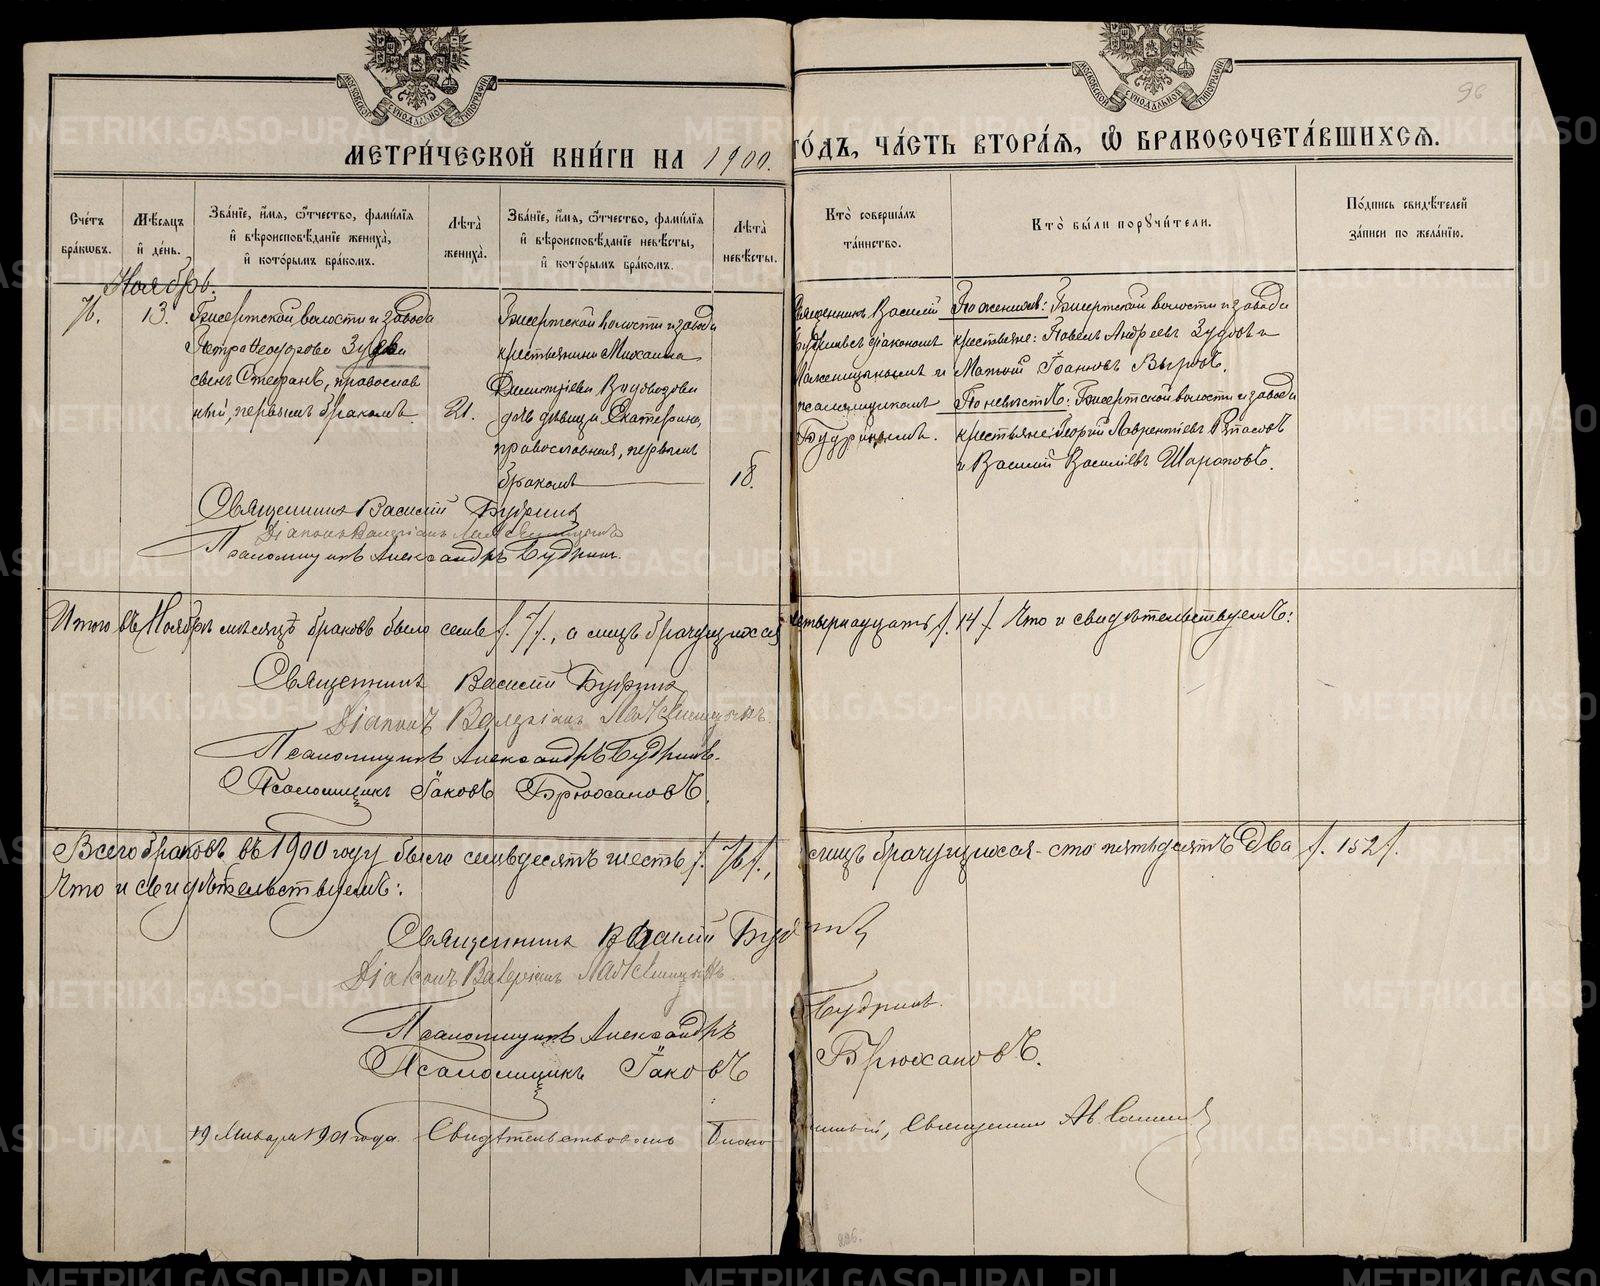 96
МЕТРИ́ЧЕСКОЙ КНИ́ГИ НА 1900. ГО́ДЪ, ЧА́СТЬ ВТОРА́Я, Ѽ БРАКОСОЧЕТА́ВШИХСЯ.
Сче́тъ бра́ковъ.
Мѣ́сяцъ и҆ де́нь.
Зва́нїе, и҆́мя, ѻ҆́тчество, фами́лїя и҆ вѣроисповѣ́данїе жениха̀, и҆ кото́рымъ бра́комъ.
Лѣта̀ жениха̀.
Зва́нїе, и҆́мя, ѻ҆́тчество, фами́лїя и҆ вѣроисповѣ́данїе невѣ́сты, и҆ кото́рымъ бра́комъ.
Лѣта̀ невѣ́сты.
Кто̀ соверша́лъ та́инство.
Кто̀ бы́ли порꙋчи́тели.
По́дпись свидѣ́телей за́писи по жела́нїю.
Ноябрь.
76.
13.
Бисертской волости и завода
Петра Ѳеодорова Зудова
сынъ Стефанъ, православ
ный, первымъ бракомъ
21.
Бисертской волости и завода
крестьянина Михаила
Димитріева Водовозова
дочь дѣвица Екатерина,
православная, первымъ
бракомъ
18.
Священникъ Василій
Будринъ съ діакономъ
и
псаломщикомъ
Будринымъ.
По женихѣ: Бисертской волости и завода
крестьяне: Павелъ Андреевъ Зудовъ и
Матѳій Іоанновъ
По невѣстѣ: Бисертской волости и завода
крестьяне: Георгій Лаврентіевъ
и Василій Василіевъ Шараповъ.
Священникъ Василій Будринъ
Діаконъ Валеріанъ
Псаломщикъ Александръ Будринъ.
Итого въ Ноябрѣ мѣсяцѣ браковъ было семь /. 7 /., а лицъ брачущихся четырнадцать /. 14 /. Что и свидѣтельствуемъ:
Священникъ Василій Будринъ
Діаконъ Валеріанъ
Псаломщикъ Александръ Будринъ.
Псаломщикъ Іаковъ Брюхановъ.
Всего браковъ въ 1900 году было семьдесятъ шесть /. 76 /., лицъ брачущихся - сто пятьдесятъ два /. 152 /.
Что и свидѣтельствуемъ:
Священникъ Василій Будринъ
Діаконъ Валеріанъ
Псаломщикъ Александръ Будринъ.
Псаломщикъ Іаковъ Брюхановъ.
19 Января 1901 года. Свидѣтельствовалъ Благочинный, Священникъ
METRIKI.GASO-URAL.RU